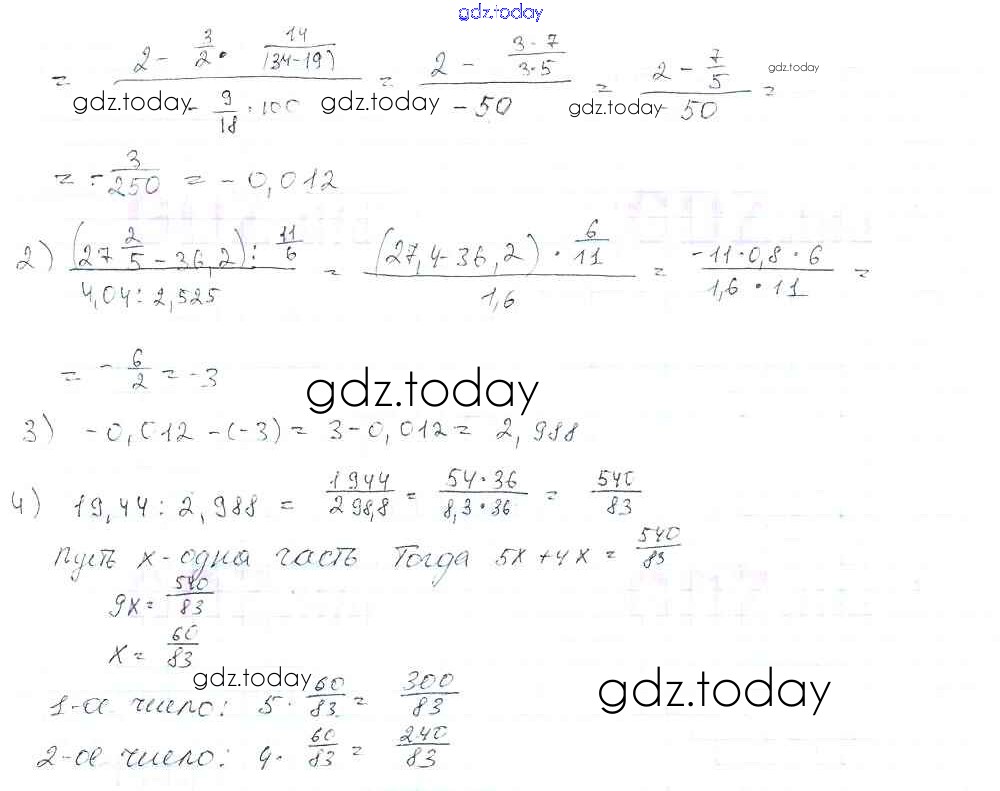 gdz.today
= (2 - 3/2 · 14/(34-19)) / (- 9/18 · 100) = (2 - (3·7)/(3·5)) / (-50) = (2 - 7/5) / (-50) =
gdz.today gdz.today gdz.today gdz.today
= - 3/250 = -0,012
2) ((27 2/5 - 36,2) : 11/6) / (4,04 : 2,525) = ((27,4-36,2) · 6/11) / 1,6 = (-11·0,8·6) / (1,6·11) =
= - 6/2 = -3
gdz.today
3) -0,012 -(-3) = 3-0,012 = 2,988
4) 19,44 : 2,988 = 1944/298,8 = (54·36)/(8,3·36) = 540/83
Пусть x - одна часть Тогда 5x+4x = 540/83
9x = 540/83
x = 60/83
gdz.today gdz.today
1-ое число: 5 · 60/83 = 300/83
2-ое число: 4 · 60/83 = 240/83